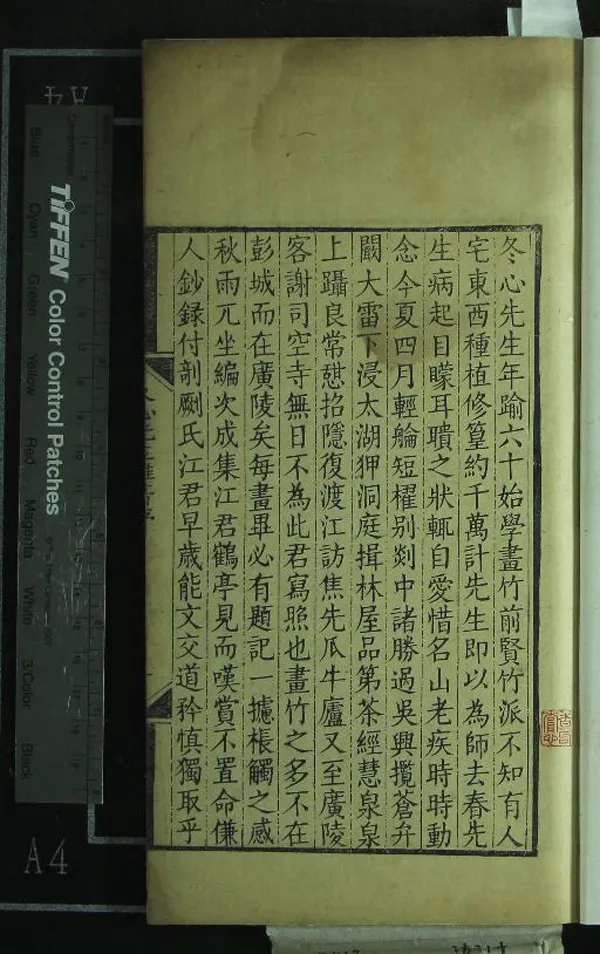 冬心先生年踰六十始學畫竹前賢竹派不知有人
宅東西種植修篁約千萬計先生即以為師去春先
生病起目矇耳聵之狀輒自愛惜名山老疾時時動
念今夏四月輕艑短櫂别剡中諸勝過吳興攬蒼弁
闞大雷下浸太湖狎洞庭揖林屋品第茶經慧泉泉
上躡良常憇招隱復渡江訪焦先瓜牛廬又至廣陵
客謝司空寺無日不為此君寫照也畫竹之多不在
彭城而在廣陵矣每畫畢必有題記一攄棖觸之感
秋雨兀坐編次成集江君鶴亭見而嘆賞不置命傔
人鈔録付剞劂氏江君早歲能文交道矜慎獨取乎
TIFFEN Color Control Patches
Blue
Cyan
Green
Yellow
Red
Magenta
White
3/Color
Black
A4
A4